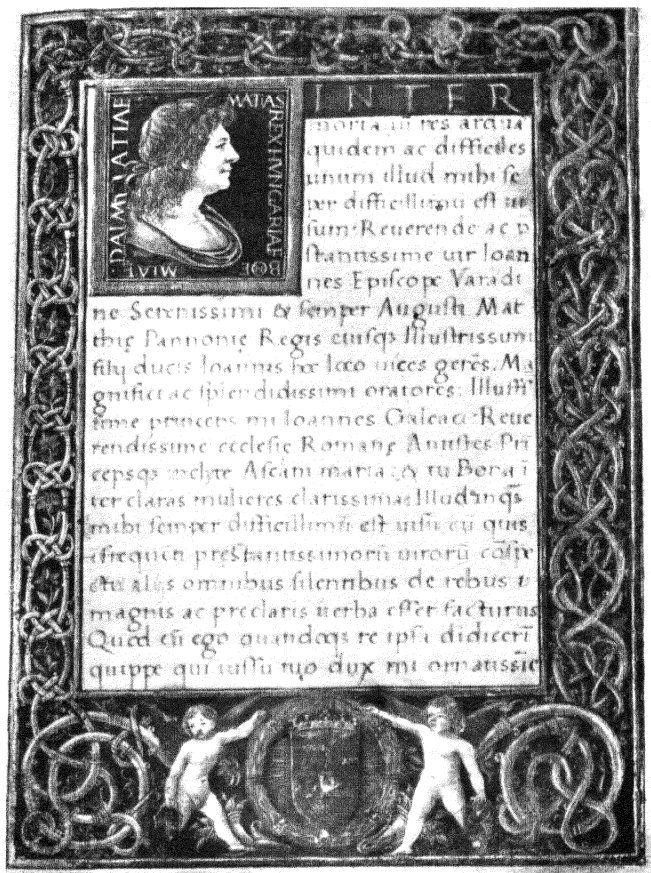 MATIAS REX HVNGARIAE BOE
MIAE DALMATIAE
INTER
mortaliū res arduas
quidem ac difficiles
unum illud mihi se
per difficillimū est ui
sum: Reuerende ac p
stantissime uir Ioan
nes Episcope Varadi
ne Serenissimi & semper Augusti Mat
thię Pannonię Regis eiusq Illustrissimi
filij ducis Ioannis hoc loco uices gerēs. Ma
gnifici ac splendidissimi oratores: Illust
sime princeps mi Ioannes Galeaci: Reue
rendissime ecclesię Romanę Antistes Pri
cepsq inclyte Ascani maria: & tu Bona i
ter claras mulieres clarissima: Illud inqs
mihi semper difficillimū est uisū cū quis
ī frequēti pręstantissimorū uirorū cōspe
ctu aliis omnibus silentibus de rebus
magnis ac preclaris uerba esset facturus
Quod cū ego quandoqs re ipsa didiceri
quippe qui iussu tuo dux mi ornatissie